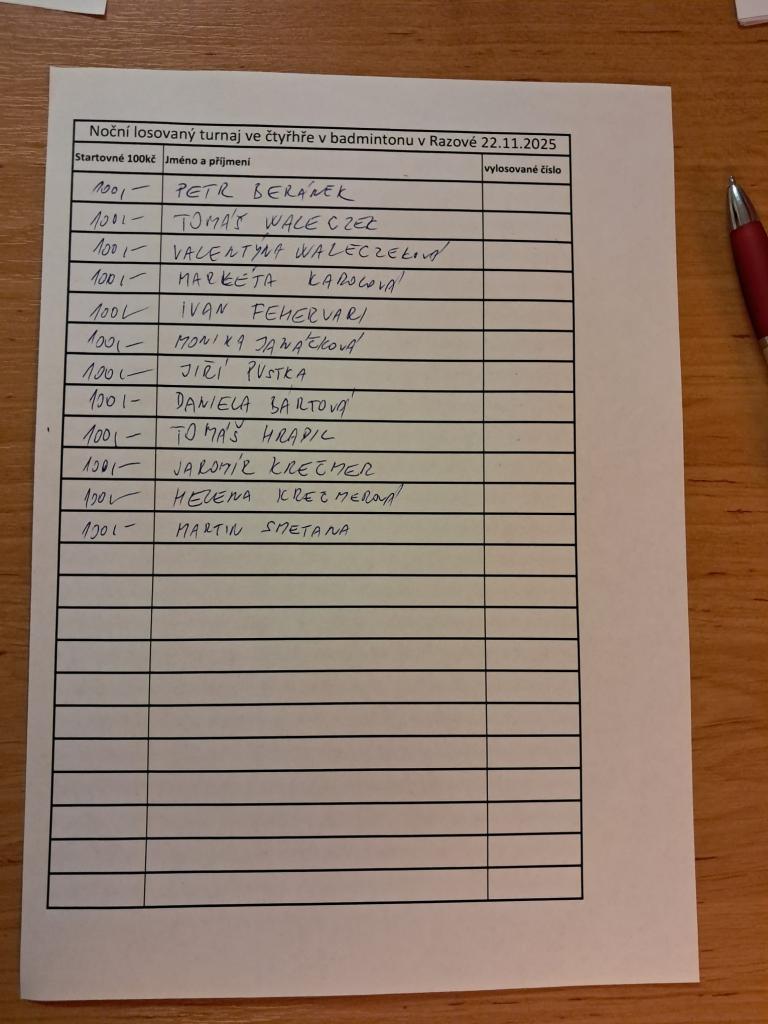 Noční losovaný turnaj ve čtyřhře v badmintonu v Razové 22.11.2025
Startovné 100kč Jméno a příjmení vylosované číslo
100,- PETR BERÁNEK
100,- TOMÁŠ WALECZEK
100,- VALENTÝNA WALECZEKOVÁ
100,- MARKÉTA KAROLOVÁ
100,- IVAN FEHERVARI
100,- MONIKA JANÁČKOVÁ
100,- JIŘÍ PUSTKA
100,- DANIELA BÁRTOVÁ
100,- TOMÁŠ HRADIL
100,- JAROMÍR KREČMER
100,- HELENA KREČMEROVÁ
100,- MARTIN SMETANA